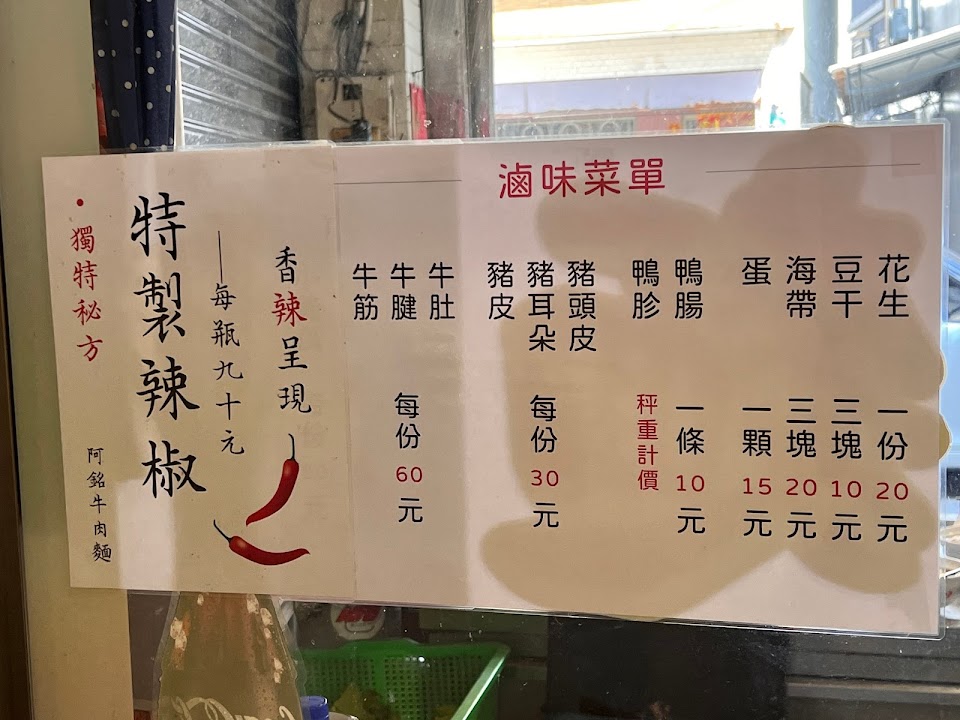 滷味菜單
花生 一份20元
豆干 三塊10元
海帶 三塊20元
蛋 一顆15元
鴨腸 一條10元
鴨胗 秤重計價
豬頭皮
豬耳朵
豬皮
每份30元
牛肚
牛腱
牛筋
每份60元
香辣呈現
——每瓶九十元
特製辣椒
•獨特秘方
阿銘牛肉麵